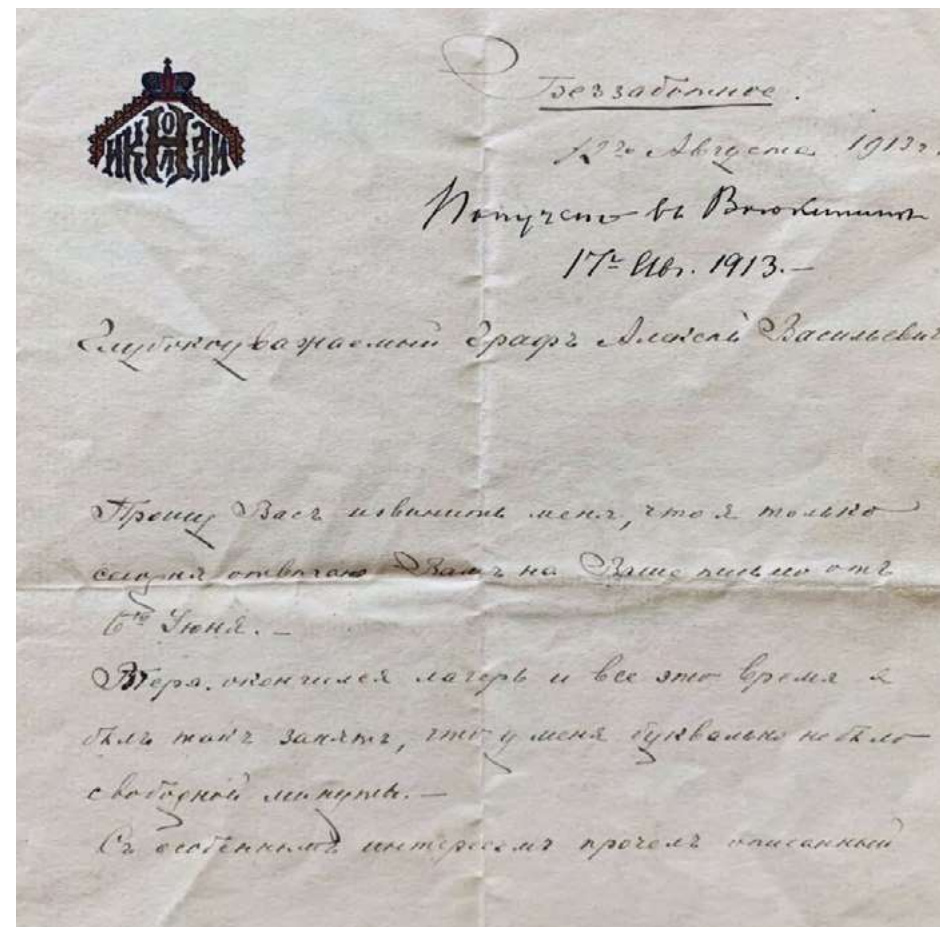 НИКОЛАЙ
Беззаботное.
12го Августа 1913г.
Получено въ
17го Авг. 1913.—
Глубокоуважаемый Графъ Алексѣй Васильевичъ
Прошу Васъ извинить меня, что я только
сегодня отвѣчаю Вамъ на Ваше письмо отъ
6го Іюня.—
Вчера окончился лагерь и все это время я
былъ такъ занятъ, что у меня буквально не было
свободной минуты.—
Съ особеннымъ интересомъ прочелъ описанный